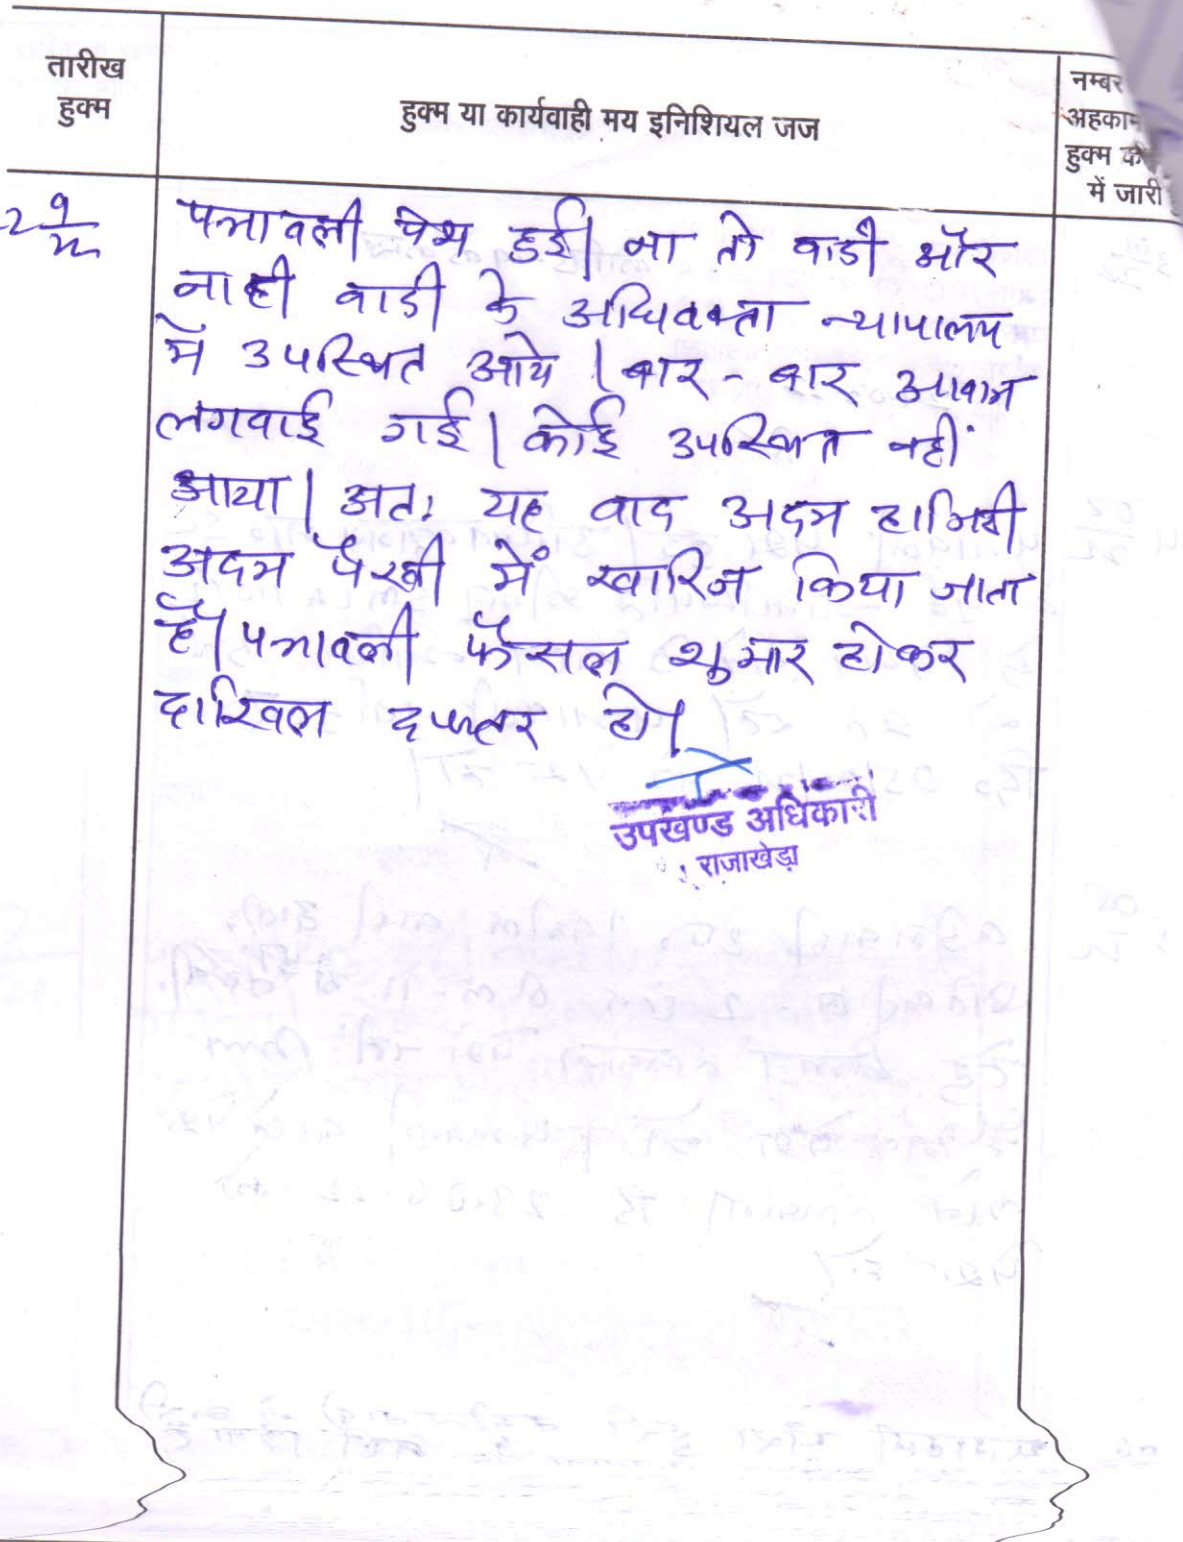 तारीख
हुक्म
हुक्म या कार्यवाही मय इनिशियल जज
नम्बर
अहकाम
हुक्म की
में जारी
पत्रावली पेश हुई। ना तो वादी और
नाही वादी के अधिवक्ता न्यायालय
में उपस्थित आये। बार-बार आवाज
लगवाई गई। कोई उपस्थित नहीं
आया। अतः यह वाद अदम हाजिरी
अदम पैरवी में खारिज किया जाता
है। पत्रावली फैसल शुमार होकर
दाखिल दफ्तर हो।
उपखण्ड अधिकारी
राजाखेड़ा